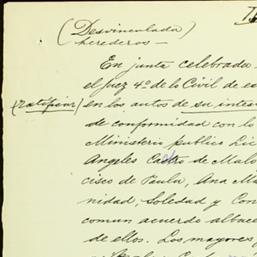 (Desvinculada)
herederos —
En junta celebrada
el juez 4º de lo Civil de es
(ratifican)
en los autos de su intes
de conformidad con lo
Ministerio público Lic
Angeles Castro de Malo
cisco de Paula, Ana Ma
nidad, Soledad y Con
comun acuerdo albace
de ellos. Los mayores